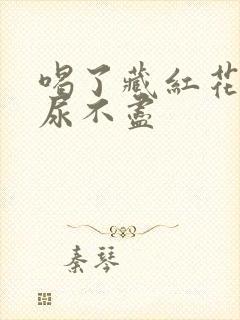 喝了藏紅花
尿不盡
秦琴